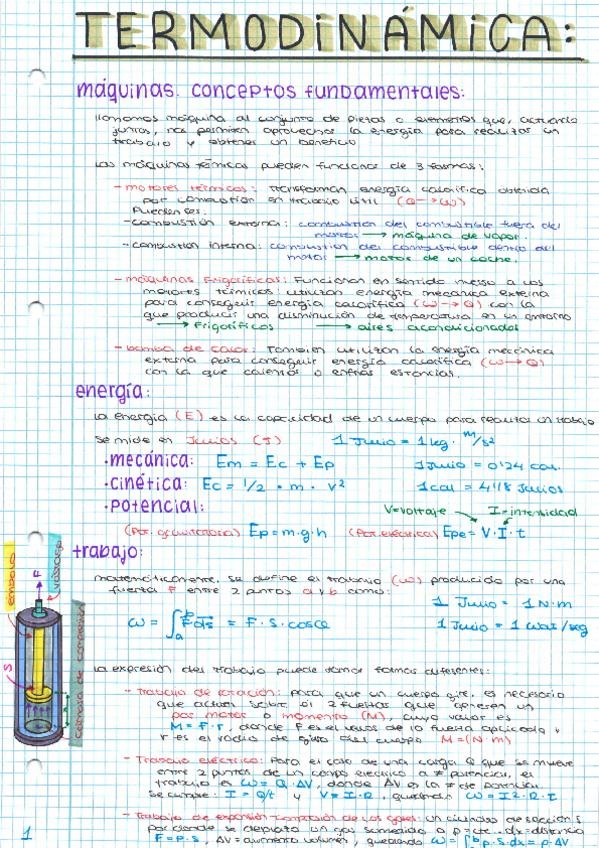 TERMODINÁMICA:
máquinas. conceptos fundamentales:
llamamos máquina al conjunto de piezas o elementos que, actuando
juntos, nos permiten aprovechar la energía para realizar un
trabajo y obtener un beneficio
Las máquinas térmicas pueden funcionar de 3 formas:
- motores térmicos: Transforman energía calorífica obtenida
por combustión en trabajo útil (Q→ω)
Pueden ser:
- combustión externa: combustión del combustible fuera del
motor → máquina de vapor.
- combustión interna: combustión del combustible dentro del
motor → motor de un coche.
- máquinas frigoríficas: Funcionan en sentido inverso a los
motores térmicos: utilizan energía mecánica externa
para conseguir energía calorífica (ω→Q) con la
que producir una disminución de temperatura en un entorno
→ Frigoríficos → aires acondicionados
- bomba de calor: También utilizan la energía mecánica
externa para conseguir energía calorífica (ω→Q)
con la que calientas o enfrías estancias.
energía:
La energía (E) es la capacidad de un cuerpo para realizar un trabajo
se mide en Julios (J) 1 Julio = 1 kg · m/s²
· mecánica: Em = Ec + Ep 1 Julio = 0'24 cal.
· cinética: Ec = 1/2 · m · v² 1 cal = 4'18 Julios
· potencial: V=voltaje I=intensidad
(Por. gravitatoria) Ep = m·g·h (Por. eléctrica) Epe = V·I·t
trabajo:
matemáticamente, se define el trabajo (ω) producido por una
fuerza F entre 2 puntos a y b como:
1 Julio = 1 N·m
ω = ∫ₐᵇ F ds = F · S · cosφ 1 Julio = 1 wat/seg
émbolo
F
vástago
S
carrera de
La expresión del trabajo puede tomar formas diferentes:
- Trabajo de rotación: para que un cuerpo gire, es necesario
que actúen sobre él 2 fuerzas que generen un
par motor o momento (M), cuyo valor es
M = F · r, donde F es el de la fuerza aplicada y
r es el radio de giro del cuerpo M = (N·m)
- Trabajo eléctrico: Para el caso de una carga Q que se mueve
entre 2 puntos de un campo eléctrico a ≠ potencial, el
trabajo es ω = Q · ΔV, donde ΔV es la ≠ de potencial
se cumple: I = Q/t y V = I·R, quedando ω = I²·R·t
- Trabajo de expansión-compresión de los gases: un cilindro de sección S
por donde se desplaza un gas sometido a p = cte. dx = distancia
F = p·S, ΔV = aumento volumen, quedando ω = ∫ₐᵇ p·S·dx = p·ΔV
1